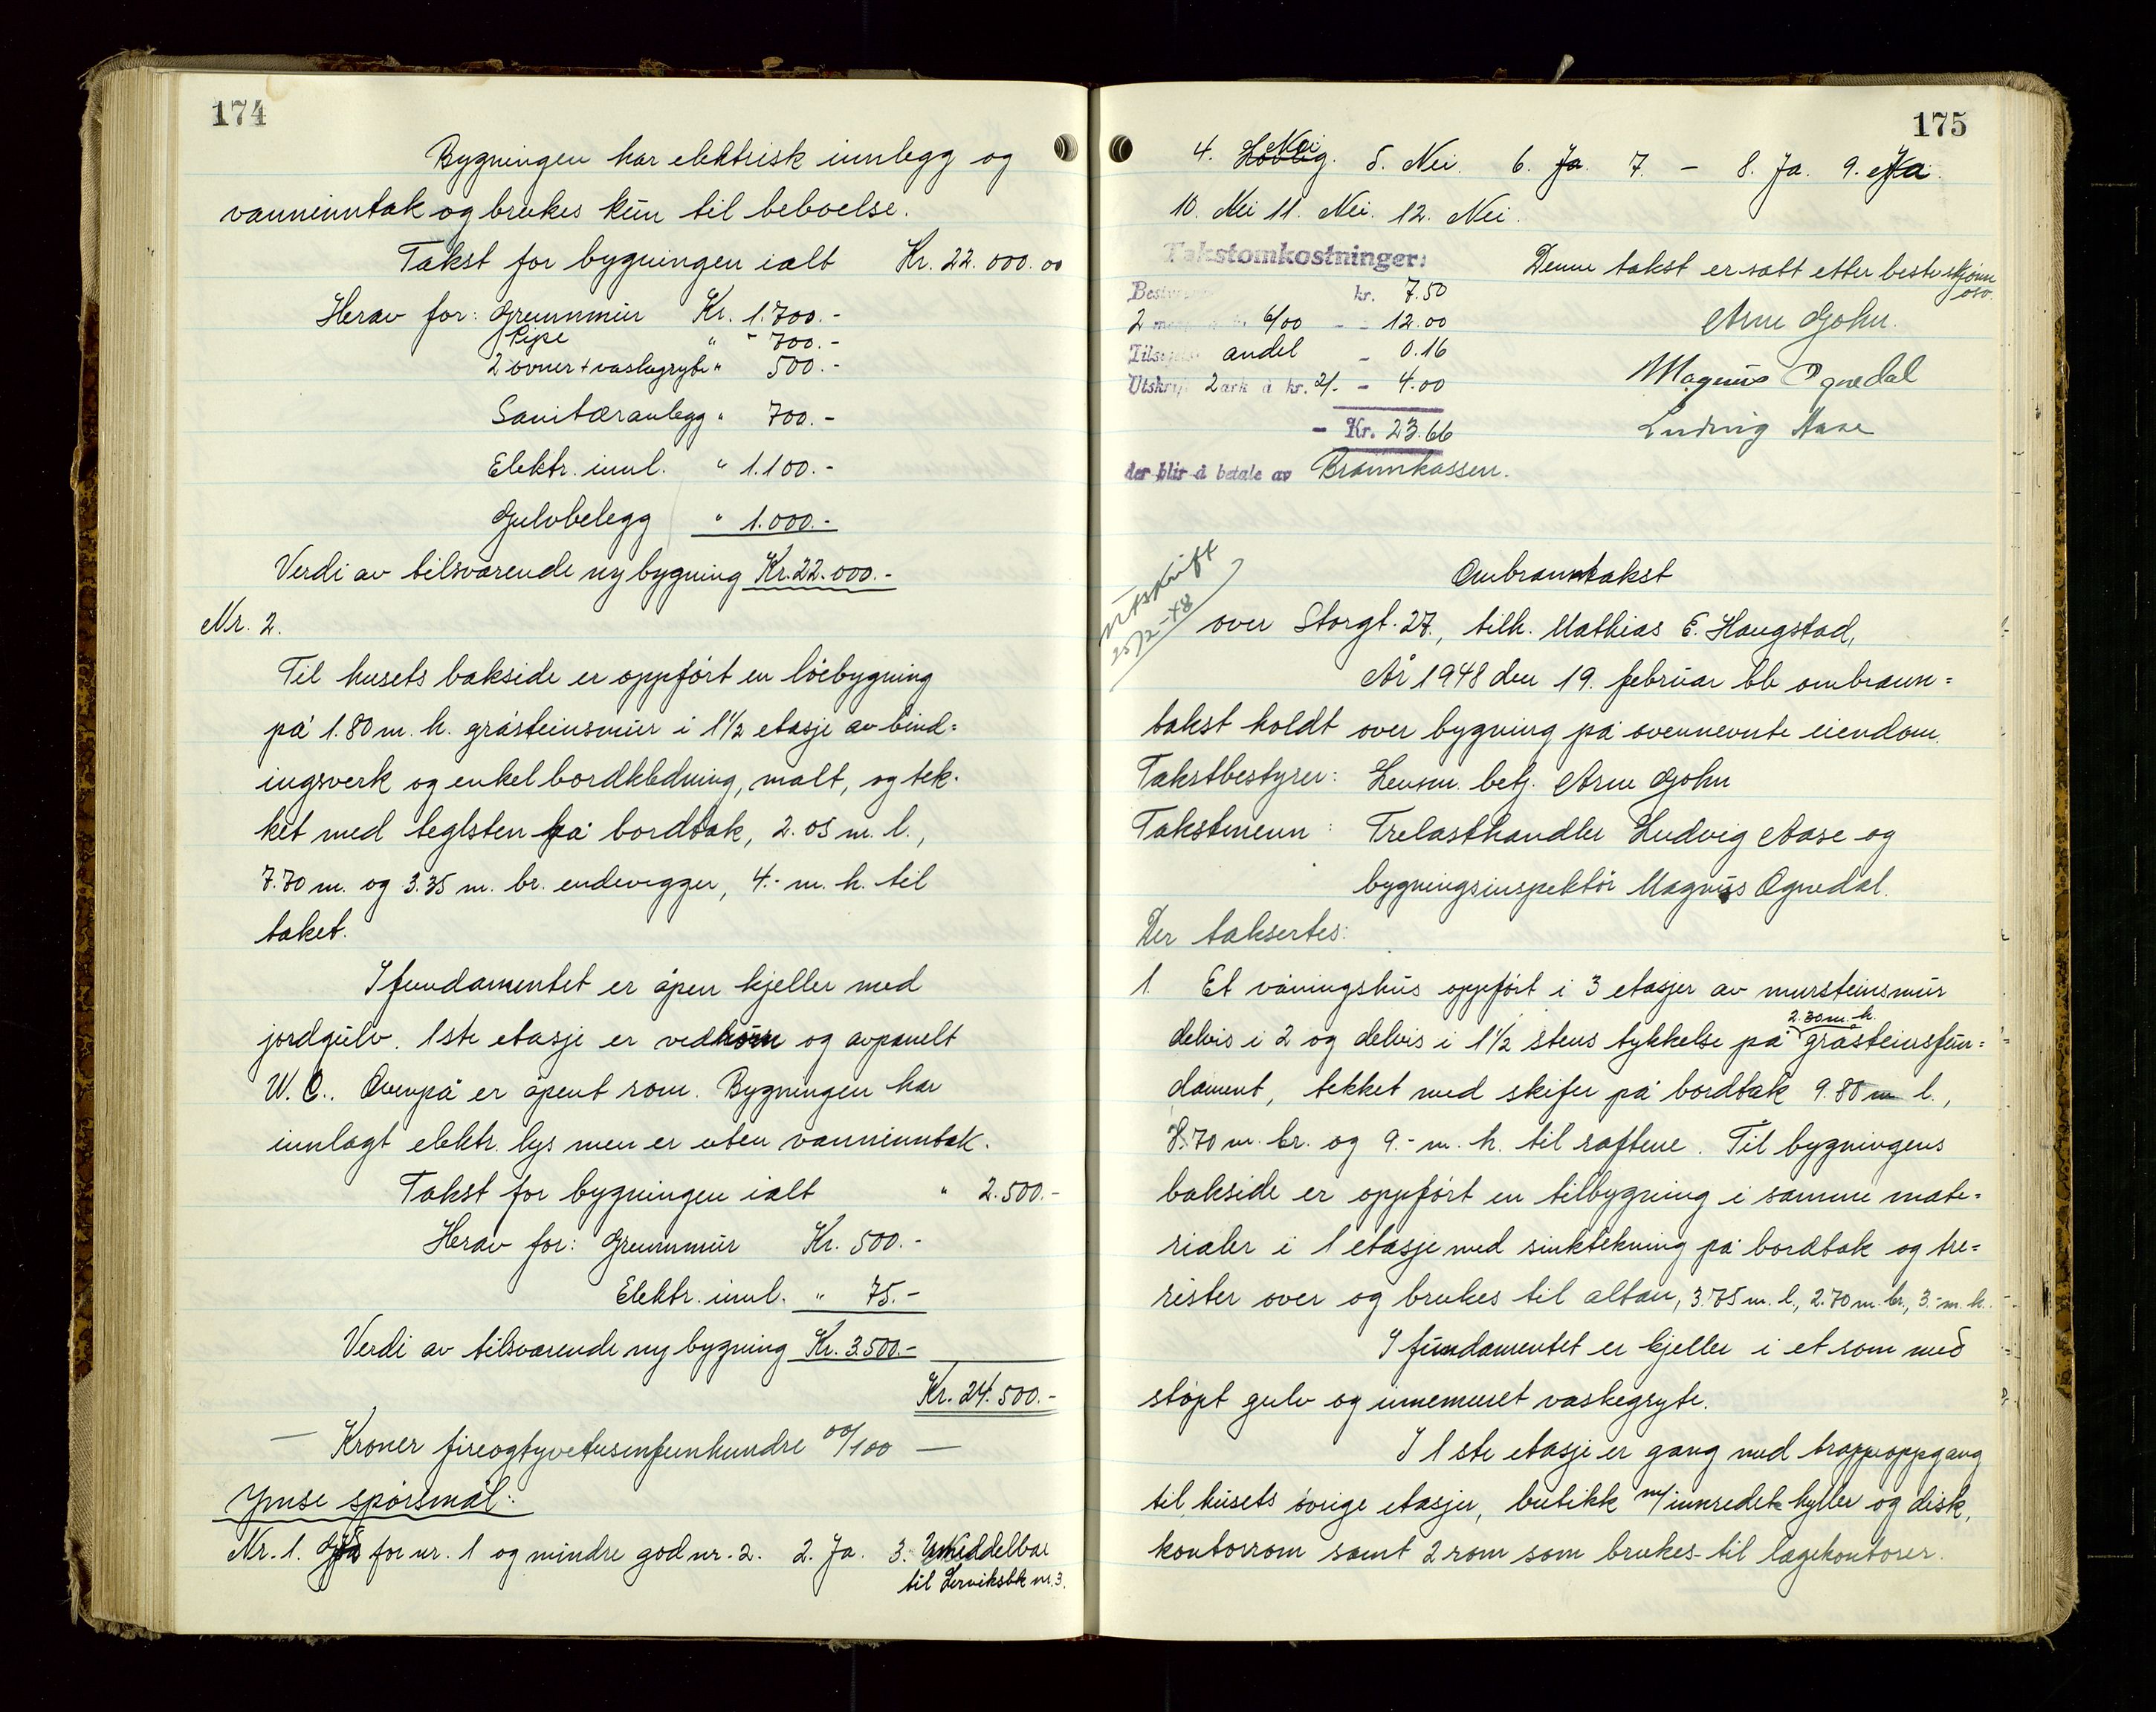 174
Bygningen har elektrisk innlegg og
vanninntak og brukes kun til beboelse.
Takst for bygningen ialt Kr. 22.000.00
Herav for: Grunnmur Kr. 1.700.-
Pipe " - 700.-
2 ovner + vaskegryte " 500.-
Sanitæranlegg " 700.-
Elektr. innl. " 1.100.-
Gulvbelegg " 1.000.-
Verdi av tilsvarende ny bygning Kr. 22.000.-
Nr. 2.
Til husets bakside er oppført en löebygning
på 1.80 m. h. gråsteinsmur i 1 1/2 etasje av bind=
ingsverk og enkel bordkledning, malt, og tek-
ket med teglsten på bordtak, 2.05 m. l.,
7.70 m. og 3.35 m. br. endevegger, 4.- m. h. til
taket.
I fundamentet er åpen kjeller med
jordgulv. 1ste etasje er vedrom og avpanelt
W.C.. Ovenpå er åpent rom. Bygningen har
innlagt elektr. lys men er uten vanninntak.
Takst for bygningen ialt " 2.500.-
Herav for: Grunnmur Kr. 500.-
Elektr. innl. " 75.-
Verdi av tilsvarende ny bygning Kr. 3.500.-
Kr. 24.500.-
— Kroner fireogtyvetusenfemhundre 00/100 —
Ymse spörsmål:
Nr. 1. for nr. 1 og mindre god nr. 2. 2. Ja. 3. Umiddelbar
til Lerviksbk nr. 3.
175
4. Nei. 5. Nei. 6. Ja. 7. - 8. Ja. 9. Ja.
10. Nei 11. Nei. 12. Nei.
Takstomkostninger:
Denne takst er satt etter beste skjönn
oso.
Besty kr. 7.50
2 6/00 - - 12.00
andel - 0.16
Utskrift 2 ark à kr. 2/- - 4.00
- Kr. 23.66
der blir å betale av Brannkassen.
Arne Gjohn.
Magnus Ognedal
Ludvig Aase
utskrift
25/2-48
Ombranntakst
over Storgt. 27., tilh. Mathias E. Haugstad,
År 1948 den 19. februar ble ombrann=
takst holdt over bygning på ovennevnte eiendom.
Takstbestyrer: Lensm. betj. Arne Gjohn
Takstmenn: Trelasthandler Ludvig Aase og
bygningsinspektör Magnus Ognedal.
Der taksertes:
1. Et våningshus oppfört i 3 etasjer av mursteinsmur
2.30 m. h.
delvis i 2 og delvis i 1 1/2 stens tykkelse på gråsteinsfun=
dament, tekket med skifer på bordtak 9.80 m l.,
8.70 m. br. og 9.- m. h. til raftene. Til bygningens
bakside er oppfört en tilbygning i samme mate=
rialer i 1 etasje med sinktekning på bordtak og tre=
rister over og brukes til altan, 3.75 m. l., 2.70 m. br., 3.- m. h.
I fundamentet er kjeller i et rom med
støpt gulv og innemuret vaskegryte.
I 1ste etasje er gang med trappeoppgang
til husets övrige etasjer, butikk m/innredet hyller og disk,
kontorrom samt 2 rom som brukes til lægekontorer.